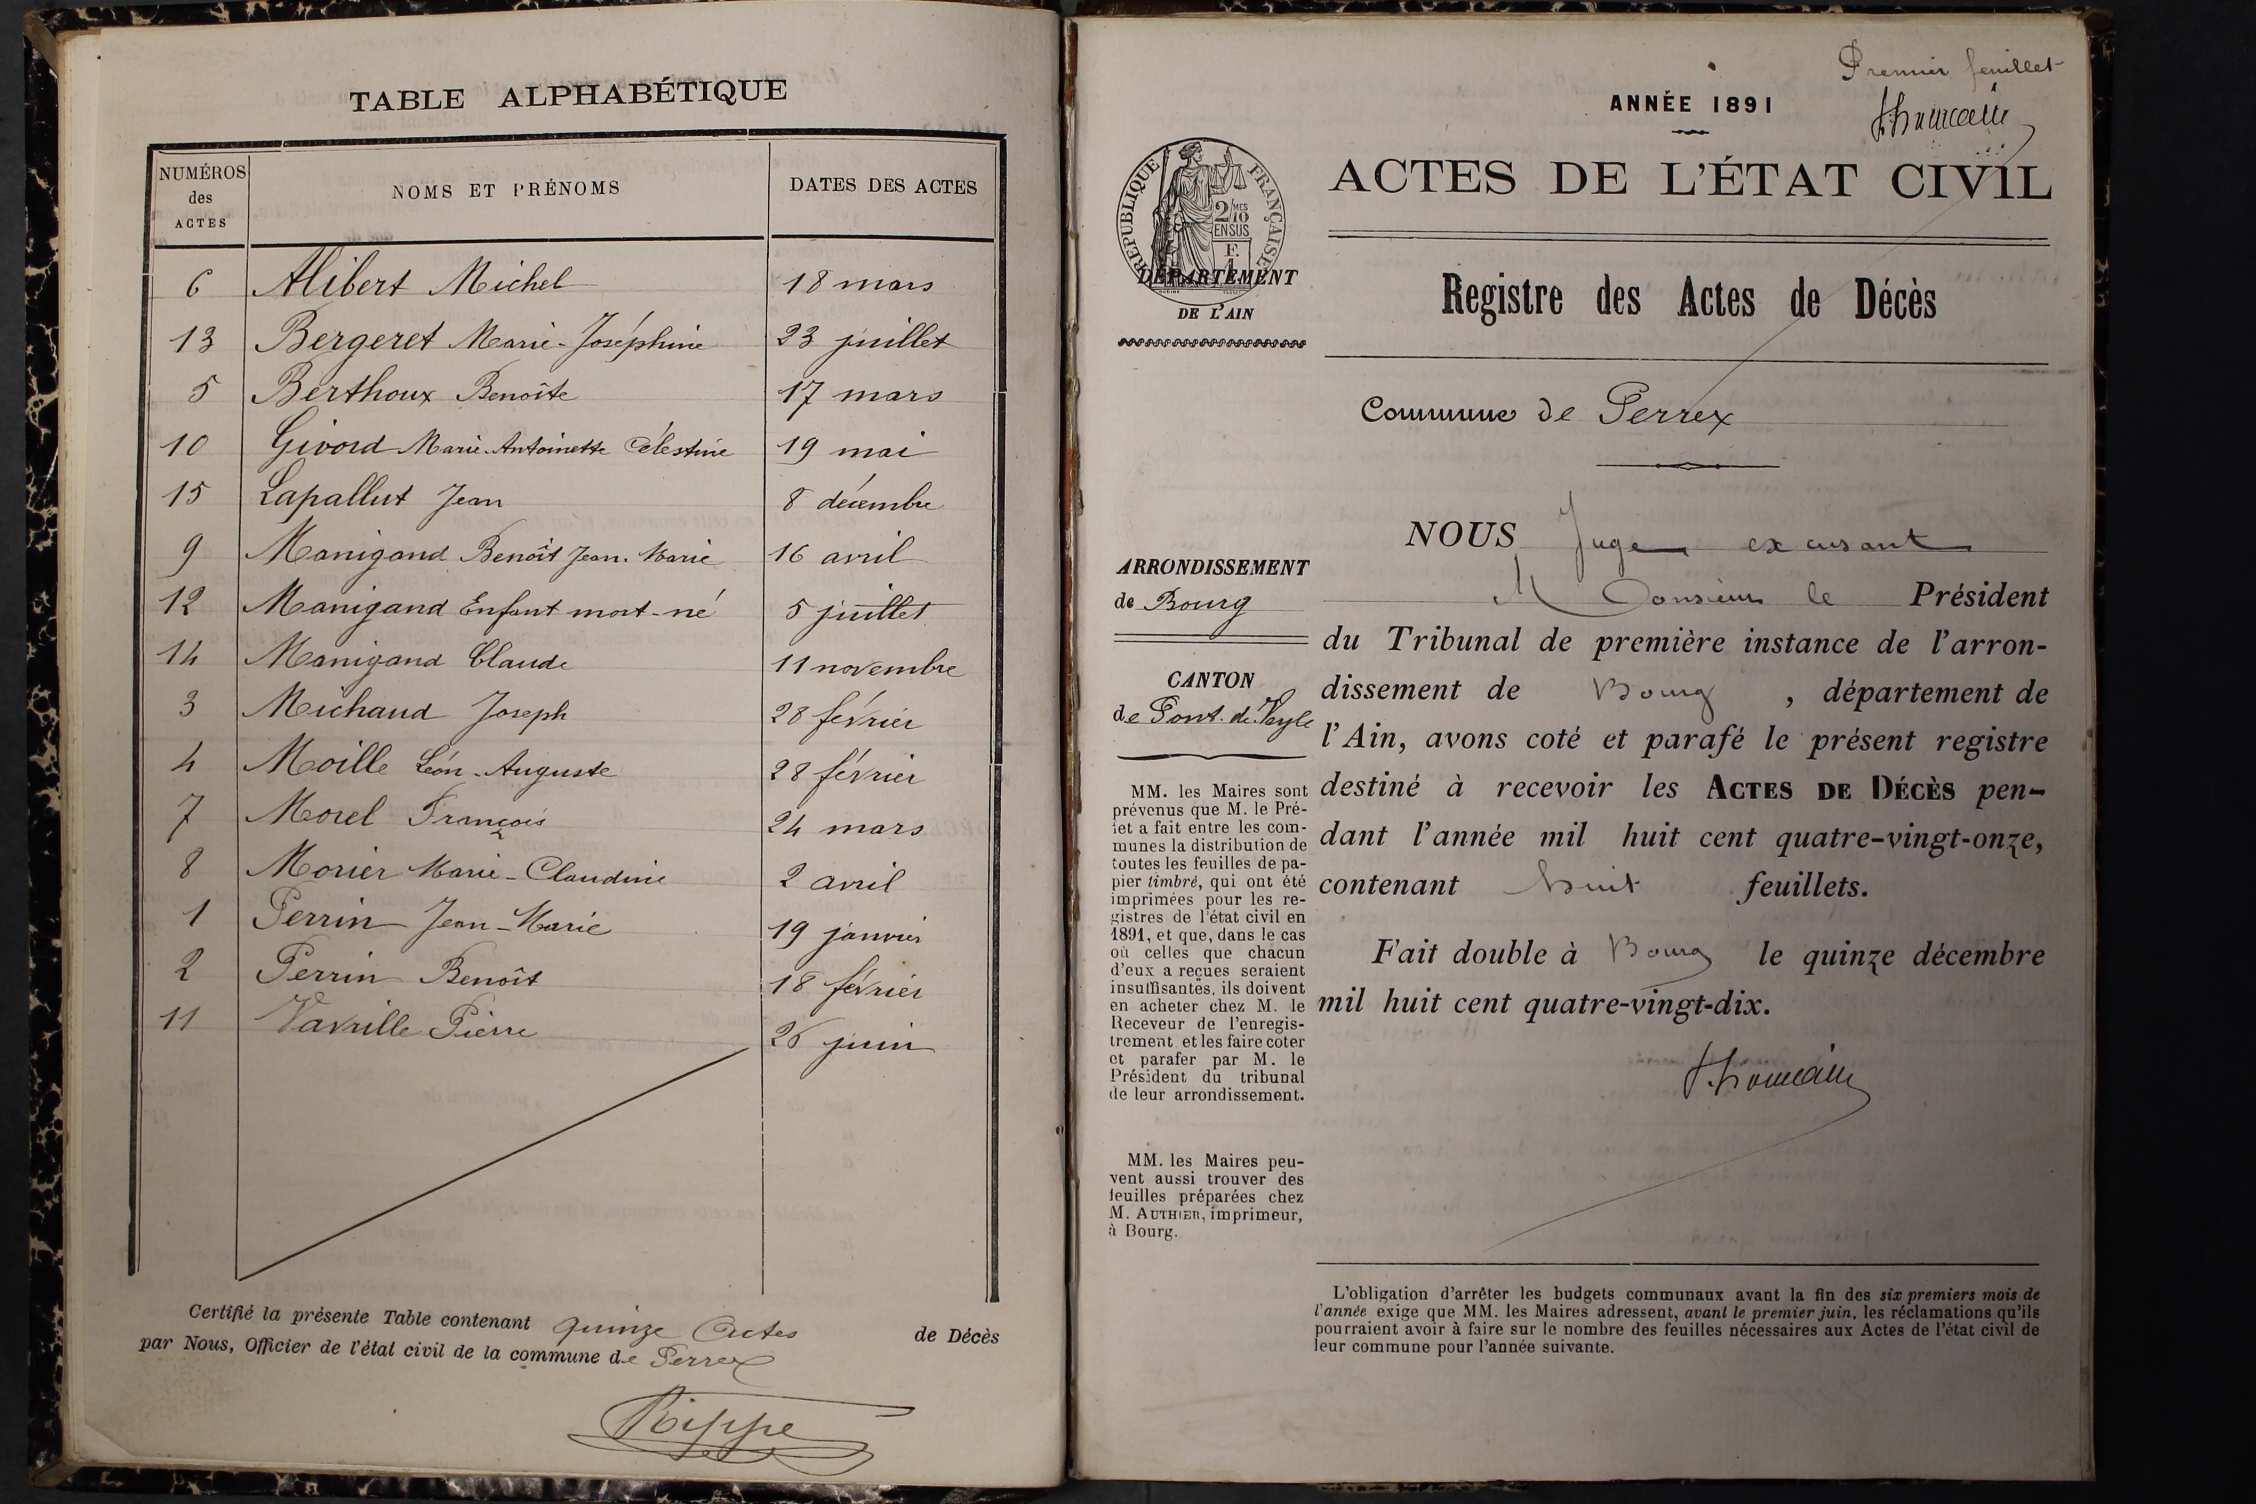 TABLE ALPHABÉTIQUE
NUMÉROS des ACTES
NOMS ET PRÉNOMS
DATES DES ACTES
6 Alibert Michel 18 mars
13 Bergeret Marie-Joséphine 23 juillet
5 Berthoux Benoîte 17 mars
10 Givord Marie-Antoinette Célestine 19 mai
15 Lapallut Jean 8 décembre
9 Manigand Benoît Jean-Marie 16 avril
12 Manigand Enfant mort-né 5 juillet
14 Manigand Claude 11 novembre
3 Michaud Joseph 28 février
4 Moille Léon-Auguste 28 février
7 Morel François 24 mars
8 Morier Marie-Claudine 2 avril
1 Perrin Jean-Marie 19 janvier
2 Perrin Benoît 18 février
11 Vavrille Pierre 26 juin
Certifié la présente Table contenant quinze Actes de Décès
par Nous, Officier de l'état civil de la commune de Perrex
Rippe
Premier feuillet
ANNÉE 1891
RÉPUBLIQUE FRANÇAISE
2/10 MES
EN SUS
F.
1
ACTES DE L'ÉTAT CIVIL
DÉPARTEMENT
DE L'AIN
Registre des Actes de Décès
Commune de Perrex
ARRONDISSEMENT
de Bourg
CANTON
de Pont-de-Veyle
MM. les Maires sont
prévenus que M. le Pré-
fet a fait entre les com-
munes la distribution de
toutes les feuilles de pa-
pier timbré, qui ont été
imprimées pour les re-
gistres de l'état civil en
1891, et que, dans le cas
où celles que chacun
d'eux a reçues seraient
insuffisantes, ils doivent
en acheter chez M. le
Receveur de l'enregis-
trement et les faire coter
et parafer par M. le
Président du tribunal
de leur arrondissement.
MM. les Maires peu-
vent aussi trouver des
feuilles préparées chez
M. AUTHIER, imprimeur,
à Bourg.
NOUS Juge excusant
Monsieur le Président
du Tribunal de première instance de l'arron-
dissement de Bourg, département de
l'Ain, avons coté et parafé le présent registre
destiné à recevoir les ACTES DE DÉCÈS pen-
dant l'année mil huit cent quatre-vingt-onze,
contenant huit feuillets.
Fait double à Bourg le quinze décembre
mil huit cent quatre-vingt-dix.
L'obligation d'arrêter les budgets communaux avant la fin des six premiers mois de
l'année exige que MM. les Maires adressent, avant le premier juin, les réclamations qu'ils
pourraient avoir à faire sur le nombre des feuilles nécessaires aux Actes de l'état civil de
leur commune pour l'année suivante.